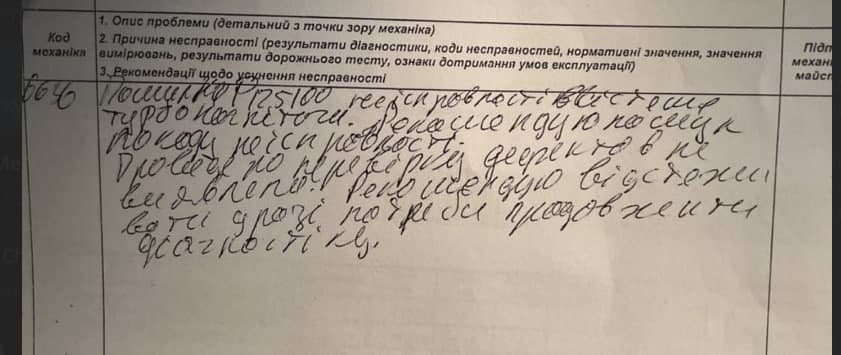 Код механіка
1. Опис проблеми (детальний з точки зору механіка)
2. Причина несправності (результати діагностики, коди несправностей, нормативні значення, значення
вимірювань, результати дорожнього тесту, ознаки дотримання умов експлуатації)
3. Рекомендації щодо усунення несправності
Підп
механі
майст
Помилка P125100 несправності в системе
турбонагнітача. Рекомендую пошук
по коду неісправності.
Проведено перевірку дефектов не
виявлено. Рекомендую відстежи
вати у разі потреби продовжити
діагностіку.